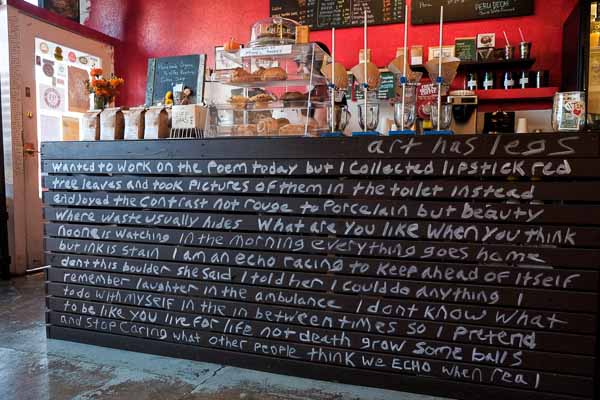 PERU DECAF
art has legs
wanted to work on the poem today but I collected lipstick red
tree leaves and took pictures of them in the toilet instead
endjoyed the contrast not rouge to Porcelain but beauty
where waste usually hides What are you like when you think
noone is watching In the morning everything goes home
but ink is stain I am an echo racing to keep ahead of itself
dont this boulder she said I told her I could do anything I
remember laughter in the ambulance I dont know what
to do with myself in the in between times so I pretend
to be like you live for life not death grow some balls
and stop caring what other people think we ECHO when real